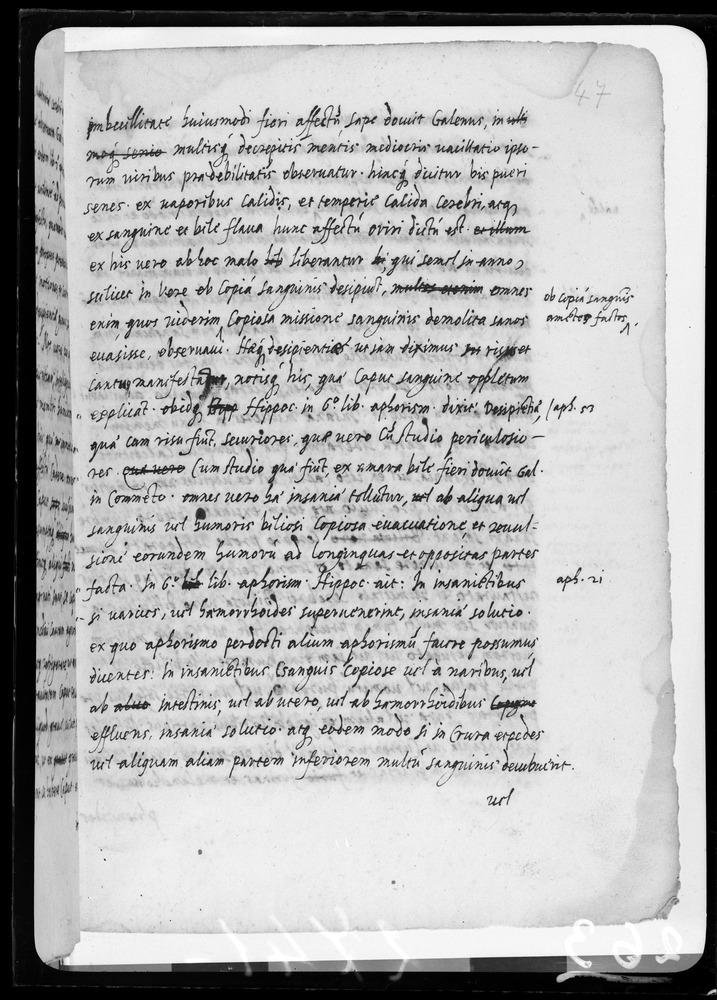 47
imbecillitate huiusmodi fieri affectū, sæpe docuit Galenus, in
multisq́ decrepitis mentis mediocris vacillatio ipso-
rum viribus prædebilitatis observatur. hincq́ dicitur bis pueri
senes. ex vaporibus calidis, et temperie calida cerebri, atq́
ex sanguine et bile flava hunc affectū oriri dictū est. et illum
ex his vero ab hoc malo lib liberantur hi qui semel in anno,
scilicet in vere ob copiā sanguinis desipiūt, omnes
enim, quos viderim, copiosa missione sanguinis demolita sanos
evasisse, observavi. Hæq́ desipientiæ ut iam diximus risus et
cantus manifestatur, notisq́ his, quæ caput sanguine oppletum
explicāt. obidq́ Hippoc. in 6.º lib. aphorism. dixit: Desipiētiæ,
quæ cum risu fiūt, securiores, quæ vero cū studio periculosio-
res. quæ vero Cum studio quæ fiūt, ex amara bile fieri docuit Gal.
in Commēto. omnes vero hæ insaniæ tollūtur, vel ab aliqua vel
sanguinis vel humoris biliosi copiosa evacuatione, et revul-
sione eorundem humorū ad longinquas et oppositas partes
facta. In 6.º lib lib. aphorism. Hippoc. ait: In insaniētibus
si varices, vel hæmorrhoides supervenerint, insaniæ solutio.
ex quo aphorismo perdocti alium aphorismū facere possumus
dicentes: In insaniētibus sanguis copiose vel à naribus, vel
ab alvo intestinis, vel ab utero, vel ab hæmorrhoidibus
effluens, insaniæ solutio. atq́ eodem modo si in crura et pedes
vel aliquam aliam partem inferiorem multū sanguinis decubuerit.
vel
ob copiā sanguīs
factos
aph. 53
aph. 21
263